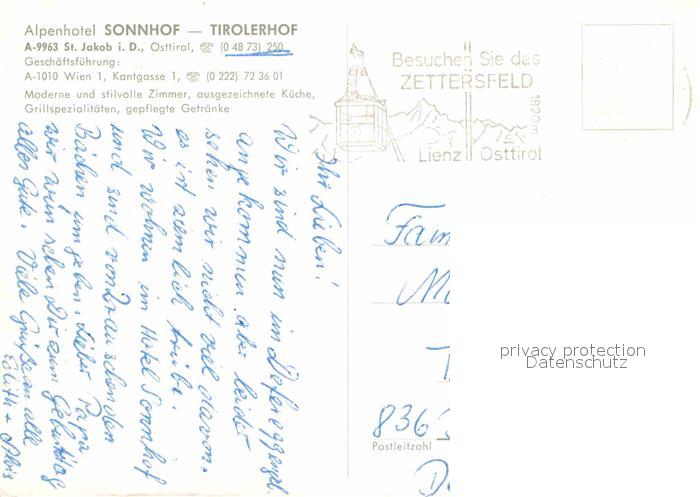 Alpenhotel SONNHOF — TIROLERHOF
A-9963 St. Jakob i. D., Osttirol, ☏ (0 48 73) 250
Geschäftsführung:
A-1010 Wien 1, Kantgasse 1, ☏ (0 222) 72 36 01
Moderne und stilvolle Zimmer, ausgezeichnete Küche,
Grillspezialitäten, gepflegte Getränke
Besuchen Sie das
ZETTERSFELD
1820 m
Lienz Osttirol
Ihr Lieben!
Wir sind nun im
angekommen aber leider
sehen wir nicht viel davon.
es ist ziemlich trübe.
Wir wohnen im Hotel Sonnhof
und sind von rauschenden
Bächen umgeben. Lieber Papa
wir wünschen Dir zum Geburtstag
alles Gute. Viele Grüße an alle
Edith + Alois
Fam
836
Postleitzahl
privacy protection
Datenschutz